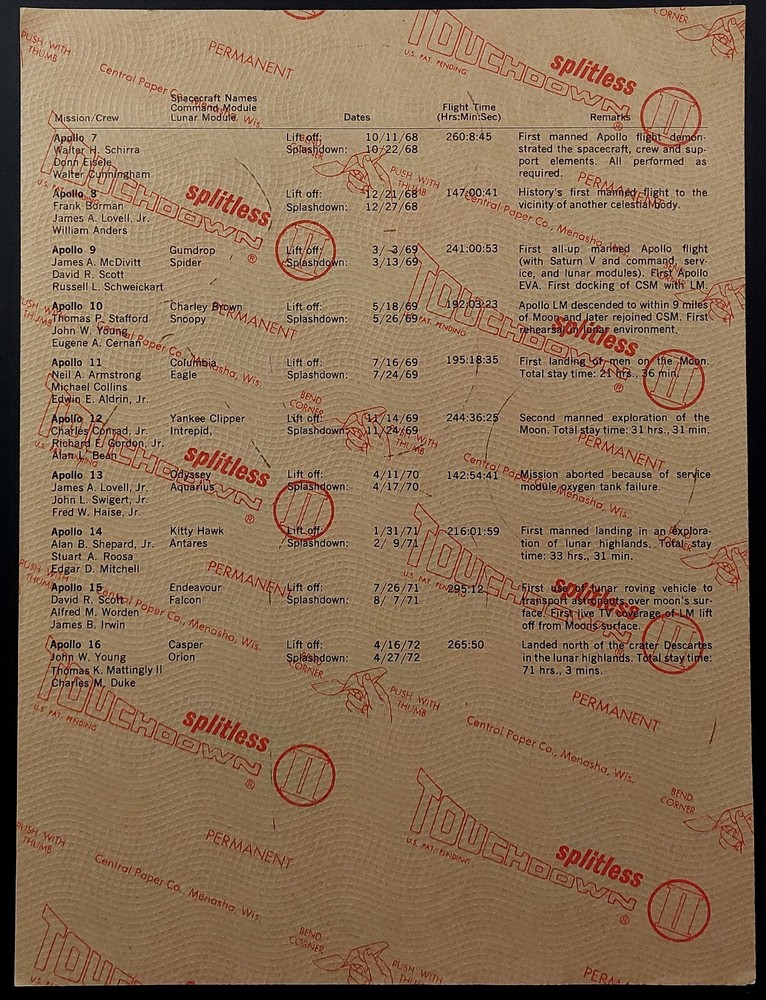 PUSH WITH
THUMB
PERMANENT
Central Paper Co., Menasha, Wis.
TOUCHDOWN
U.S. PAT. PENDING
splitless
II
®
CORNER
Spacecraft Names
Command Module
Mission/Crew Lunar Module Dates Flight Time (Hrs:Min:Sec) Remarks
Apollo 7 Lift off: 10/11/68 260:8:45 First manned Apollo flight demon-
Walter H. Schirra Splashdown: 10/22/68 strated the spacecraft, crew and sup-
Donn Eisele port elements. All performed as
Walter Cunningham required.
Apollo 8 Lift off: 12/21/68 147:00:41 History's first manned flight to the
Frank Borman Splashdown: 12/27/68 vicinity of another celestial body.
James A. Lovell, Jr.
William Anders
Apollo 9 Gumdrop Lift off: 3/ 3/69 241:00:53 First all-up manned Apollo flight
James A. McDivitt Spider Splashdown: 3/13/69 (with Saturn V and command, serv-
David R. Scott ice, and lunar modules). First Apollo
Russell L. Schweickart EVA. First docking of CSM with LM.
Apollo 10 Charley Brown Lift off: 5/18/69 192:03:23 Apollo LM descended to within 9 miles
Thomas P. Stafford Snoopy Splashdown: 5/26/69 of Moon and later rejoined CSM. First
John W. Young rehearsal in lunar environment.
Eugene A. Cernan
Apollo 11 Columbia Lift off: 7/16/69 195:18:35 First landing of men on the Moon.
Neil A. Armstrong Eagle Splashdown: 7/24/69 Total stay time: 21 hrs., 36 min.
Michael Collins
Edwin E. Aldrin, Jr.
Apollo 12 Yankee Clipper Lift off: 11/14/69 244:36:25 Second manned exploration of the
Charles Conrad, Jr. Intrepid, Splashdown: 11/24/69 Moon. Total stay time: 31 hrs., 31 min.
Richard F. Gordon, Jr.
Alan L. Bean
Apollo 13 Odyssey Lift off: 4/11/70 142:54:41 Mission aborted because of service
James A. Lovell, Jr. Aquarius Splashdown: 4/17/70 module oxygen tank failure.
John L. Swigert, Jr.
Fred W. Haise, Jr.
Apollo 14 Kitty Hawk Lift off: 1/31/71 216:01:59 First manned landing in an explora-
Alan B. Shepard, Jr. Antares Splashdown: 2/ 9/71 tion of lunar highlands. Total stay
Stuart A. Roosa time: 33 hrs., 31 min.
Edgar D. Mitchell
Apollo 15 Endeavour Lift off: 7/26/71 295:12 First use of lunar roving vehicle to
David R. Scott Falcon Splashdown: 8/ 7/71 transport astronauts over moon's sur-
Alfred M. Worden face. First live TV coverage of LM lift
James B. Irwin off from Moon's surface.
Apollo 16 Casper Lift off: 4/16/72 265:50 Landed north of the crater Descartes
John W. Young Orion Splashdown: 4/27/72 in the lunar highlands. Total stay time:
Thomas K. Mattingly II 71 hrs., 3 mins.
Charles M. Duke
TOUCHDOWN
U.S. PAT. PENDING
splitless
II
®
BEND
CORNER
PUSH WITH
THUMB
PERMANENT
Central Paper Co., Menasha, Wis.
TOUCHDOWN
U.S. PAT. PENDING
splitless
II
®
PUSH WITH
THUMB
PERMANENT
Central Paper Co., Menasha, Wis.
BEND
CORNER
PUSH WITH
THUMB